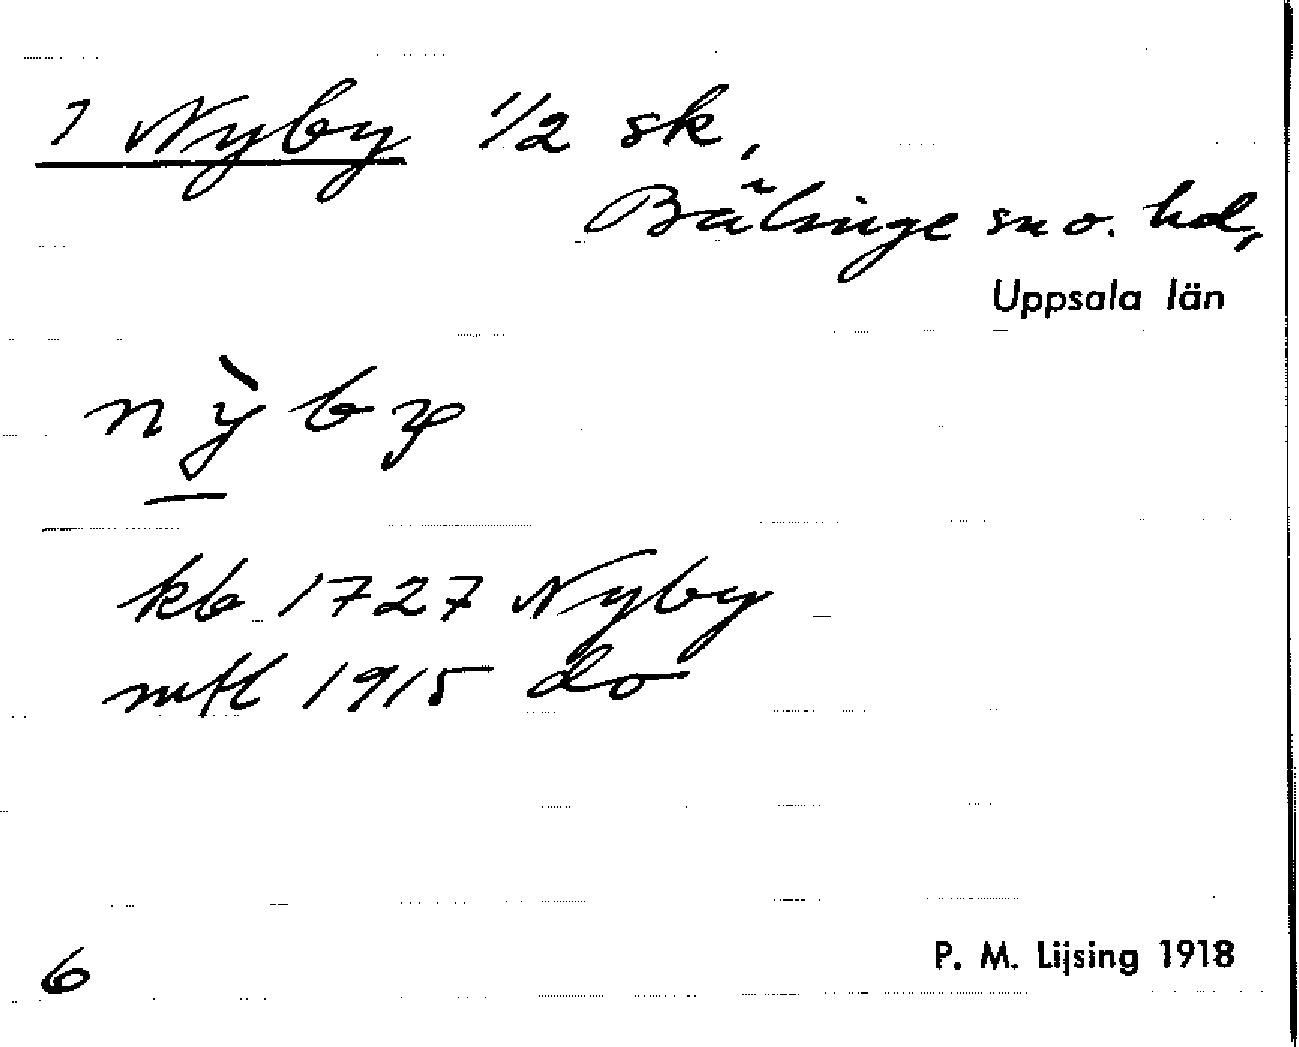 1 Nyby 1/2 sk,
Bälinge sn o. hd,
Uppsala län
nỳby
kb 1727 Nyby
mtl 1915 do
6
P. M. Lijsing 1918